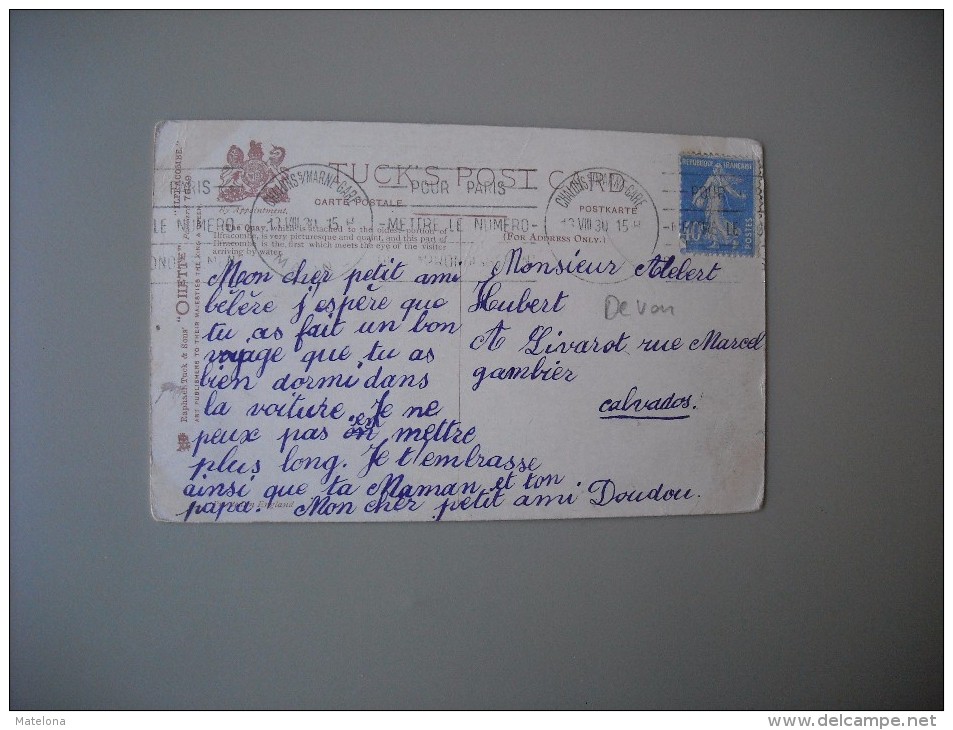 TUCK'S POST CARD
CARTE POSTALE
POSTKARTE
By Appointment.
(FOR ADDRESS ONLY.)
The Quay, which is attached to the oldest portion of
Ilfracombe, is very picturesque and quaint, and this part of
Ilfracombe is the first which meets the eye of the visitor
arriving by water.
Raphael Tuck & Sons' "OILETTE" "ILFRACOMBE."
ART PUBLISHERS TO THEIR MAJESTIES THE KING & QUEEN
CHALONS S/MARNE-GARE
13 VIII 30 15 H
MARNE
POUR PARIS
-METTRE LE NUMERO-
CHALONS S/MARNE-GARE
13 VIII 30 15 H
REPUBLIQUE FRANÇAISE
40c
POSTES
Mon cher petit ami
bébère j'espère que
tu as fait un bon
voyage que tu as
bien dormi dans
la voiture. Je ne
peux pas en mettre
plus long. Je t'embrasse
ainsi que ta Maman et ton
papa. Mon cher petit ami Doudou.
Monsieur Alebert
Hubert
A Livarot rue Marcel
gambier
calvados.
Devon
Matelona
www.delcampe.net